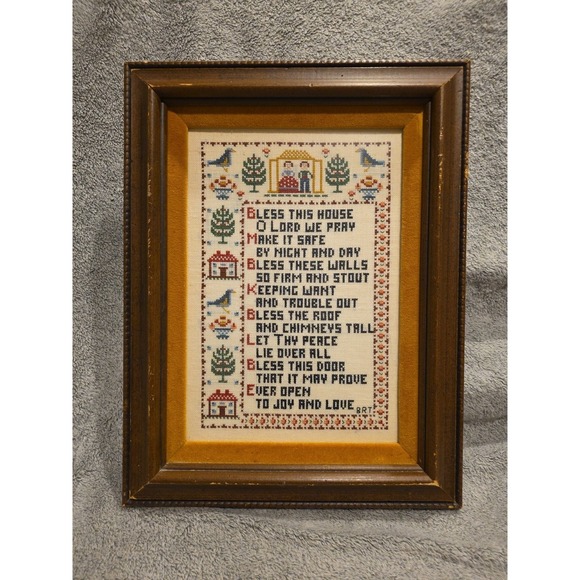 BLESS THIS HOUSE
O LORD WE PRAY
MAKE IT SAFE
BY NIGHT AND DAY
BLESS THESE WALLS
SO FIRM AND STOUT
KEEPING WANT
AND TROUBLE OUT
BLESS THE ROOF
AND CHIMNEYS TALL
LET THY PEACE
LIE OVER ALL
BLESS THIS DOOR
THAT IT MAY PROVE
EVER OPEN
TO JOY AND LOVE
BRT